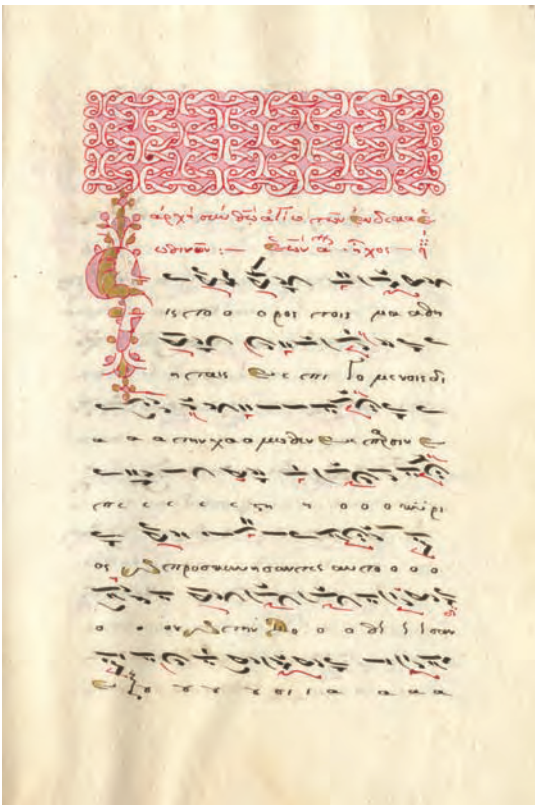 ἀρχὴ σὺν θῶ ἁγίω τῶν ἕνδεκα ἑ
ωθινῶν :— ἦχος —
Εις το ο ο ρος τοις μα α θη
η ταις ε ε επι γο με νοις δι
α α α την χα α μο θεν ε παρσιν ε
πε ε ε ε ε στη η ο ο ο κύρι
ος και προσκυνη σαντες αυ το ο ο ο
ο ο ον και την δο ο ο θει ι ι σαν
ε ξȣ ȣ ȣ ȣ σι ι α α α α